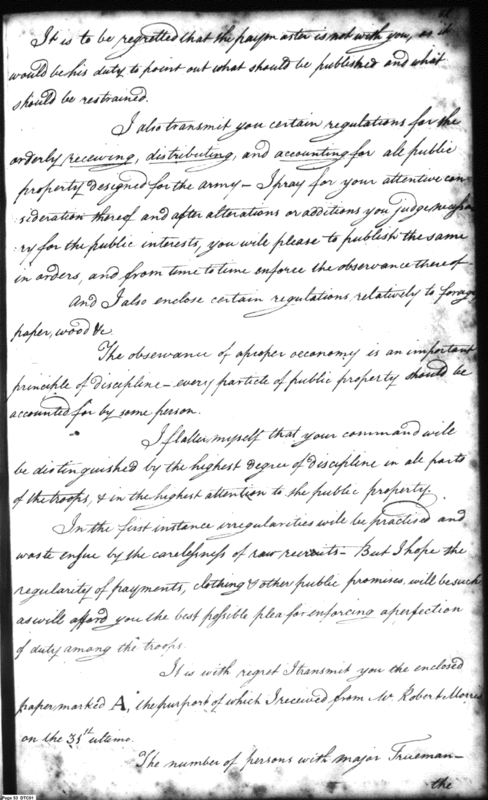 It is to be regretted that the paymaster is not with you, as it
would be his duty to point out what should be published and what
should be restrained.
I also transmit you certain regulations for the
orderly receiving, distributing, and accounting for all public
property designed for the army — I pray for your attentive con-
-sideration thereof and after alterations or additions you judge necessa-
-ry for the public interests, you will please to publish the same
in orders, and from time to time enforce the observance thereof
And I also enclose certain regulations, relatively to forage
paper, wood &c
The observance of a proper oeconomy is an important
principle of discipline — every particle of public property should be
accounted for by some person.
I flatter myself that your command will
be distinguished by the highest degree of discipline in all parts
of the troops, & in the highest attention to the public property.
In the first instance irregularities will be practised and
waste ensue by the carelessness of raw recruits — But I hope the
regularity of payments, clothing & other public promises, will be such
as will afford you the best possible plea for enforcing a perfection
of duty among the troops.
It is with regret I transmit you the enclosed
paper marked A, the purport of which I received from Mr. Robert Morris
on the 31st ultimo.
The number of persons with major Trueman —
the
Page 53 DTC01